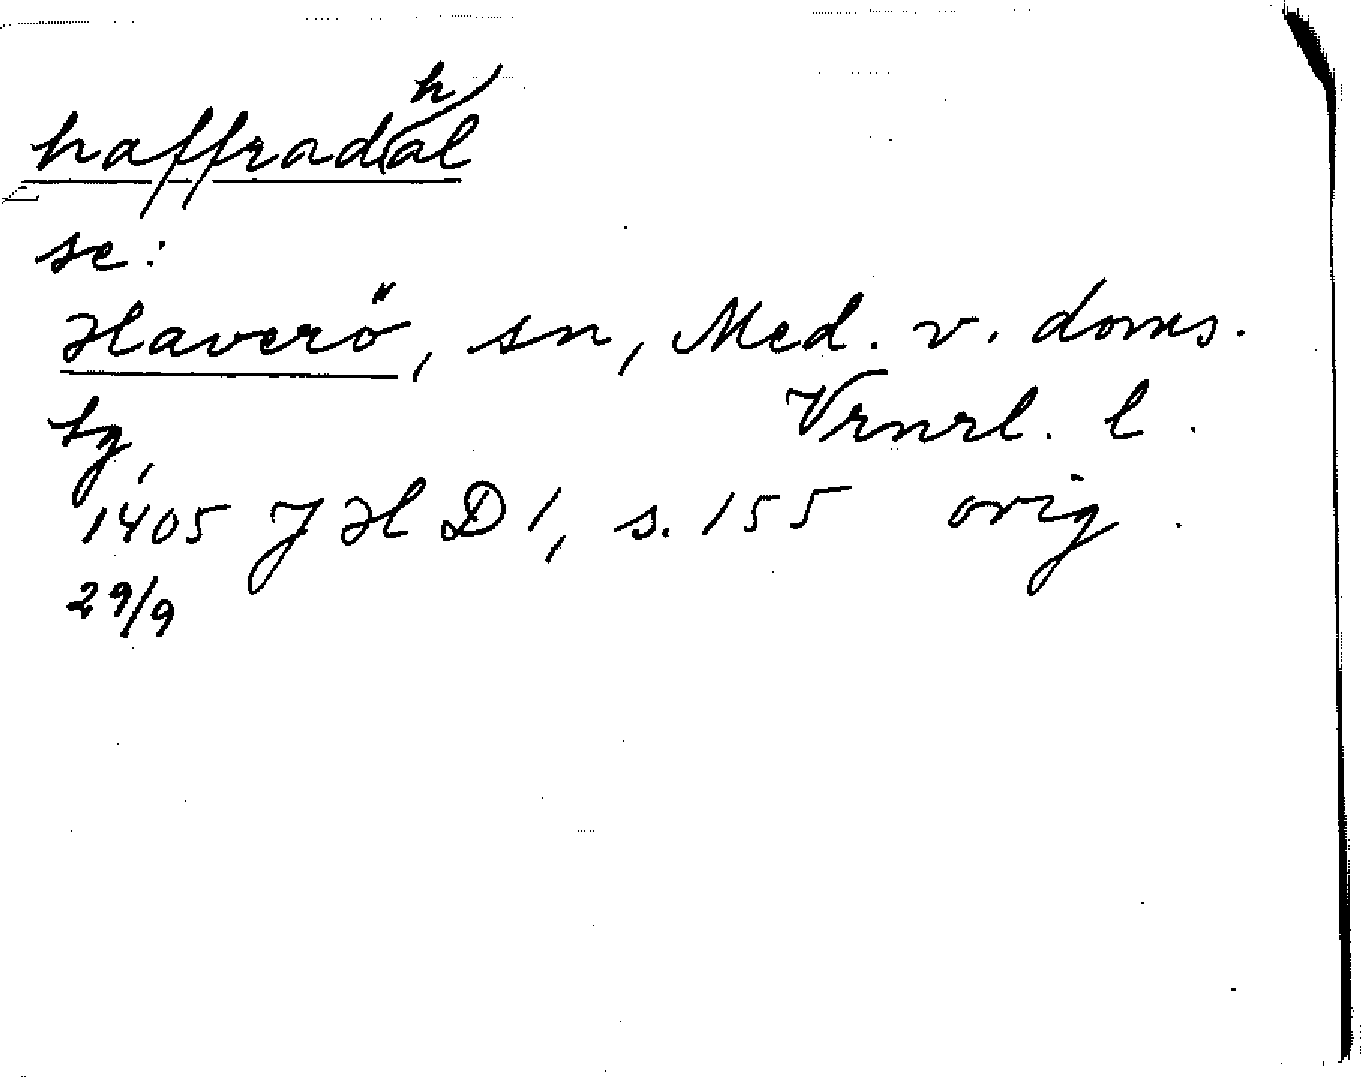 haffradhal
se:
Haverö, sn, Med. v. doms.
hg, Vrnrl. l.
1405 JHD 1, s. 155 orig.
29/9